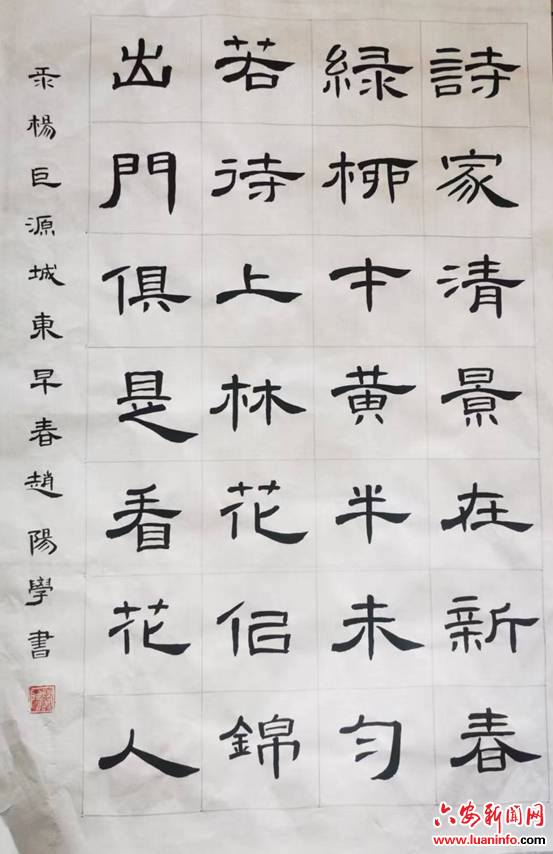 詩家清景在新春
緑柳才黄半未匀
若待上林花佀錦
出門俱是看花人
录楊巨源城東早春趙陽學書
六安新闻网
www.luaninfo.com